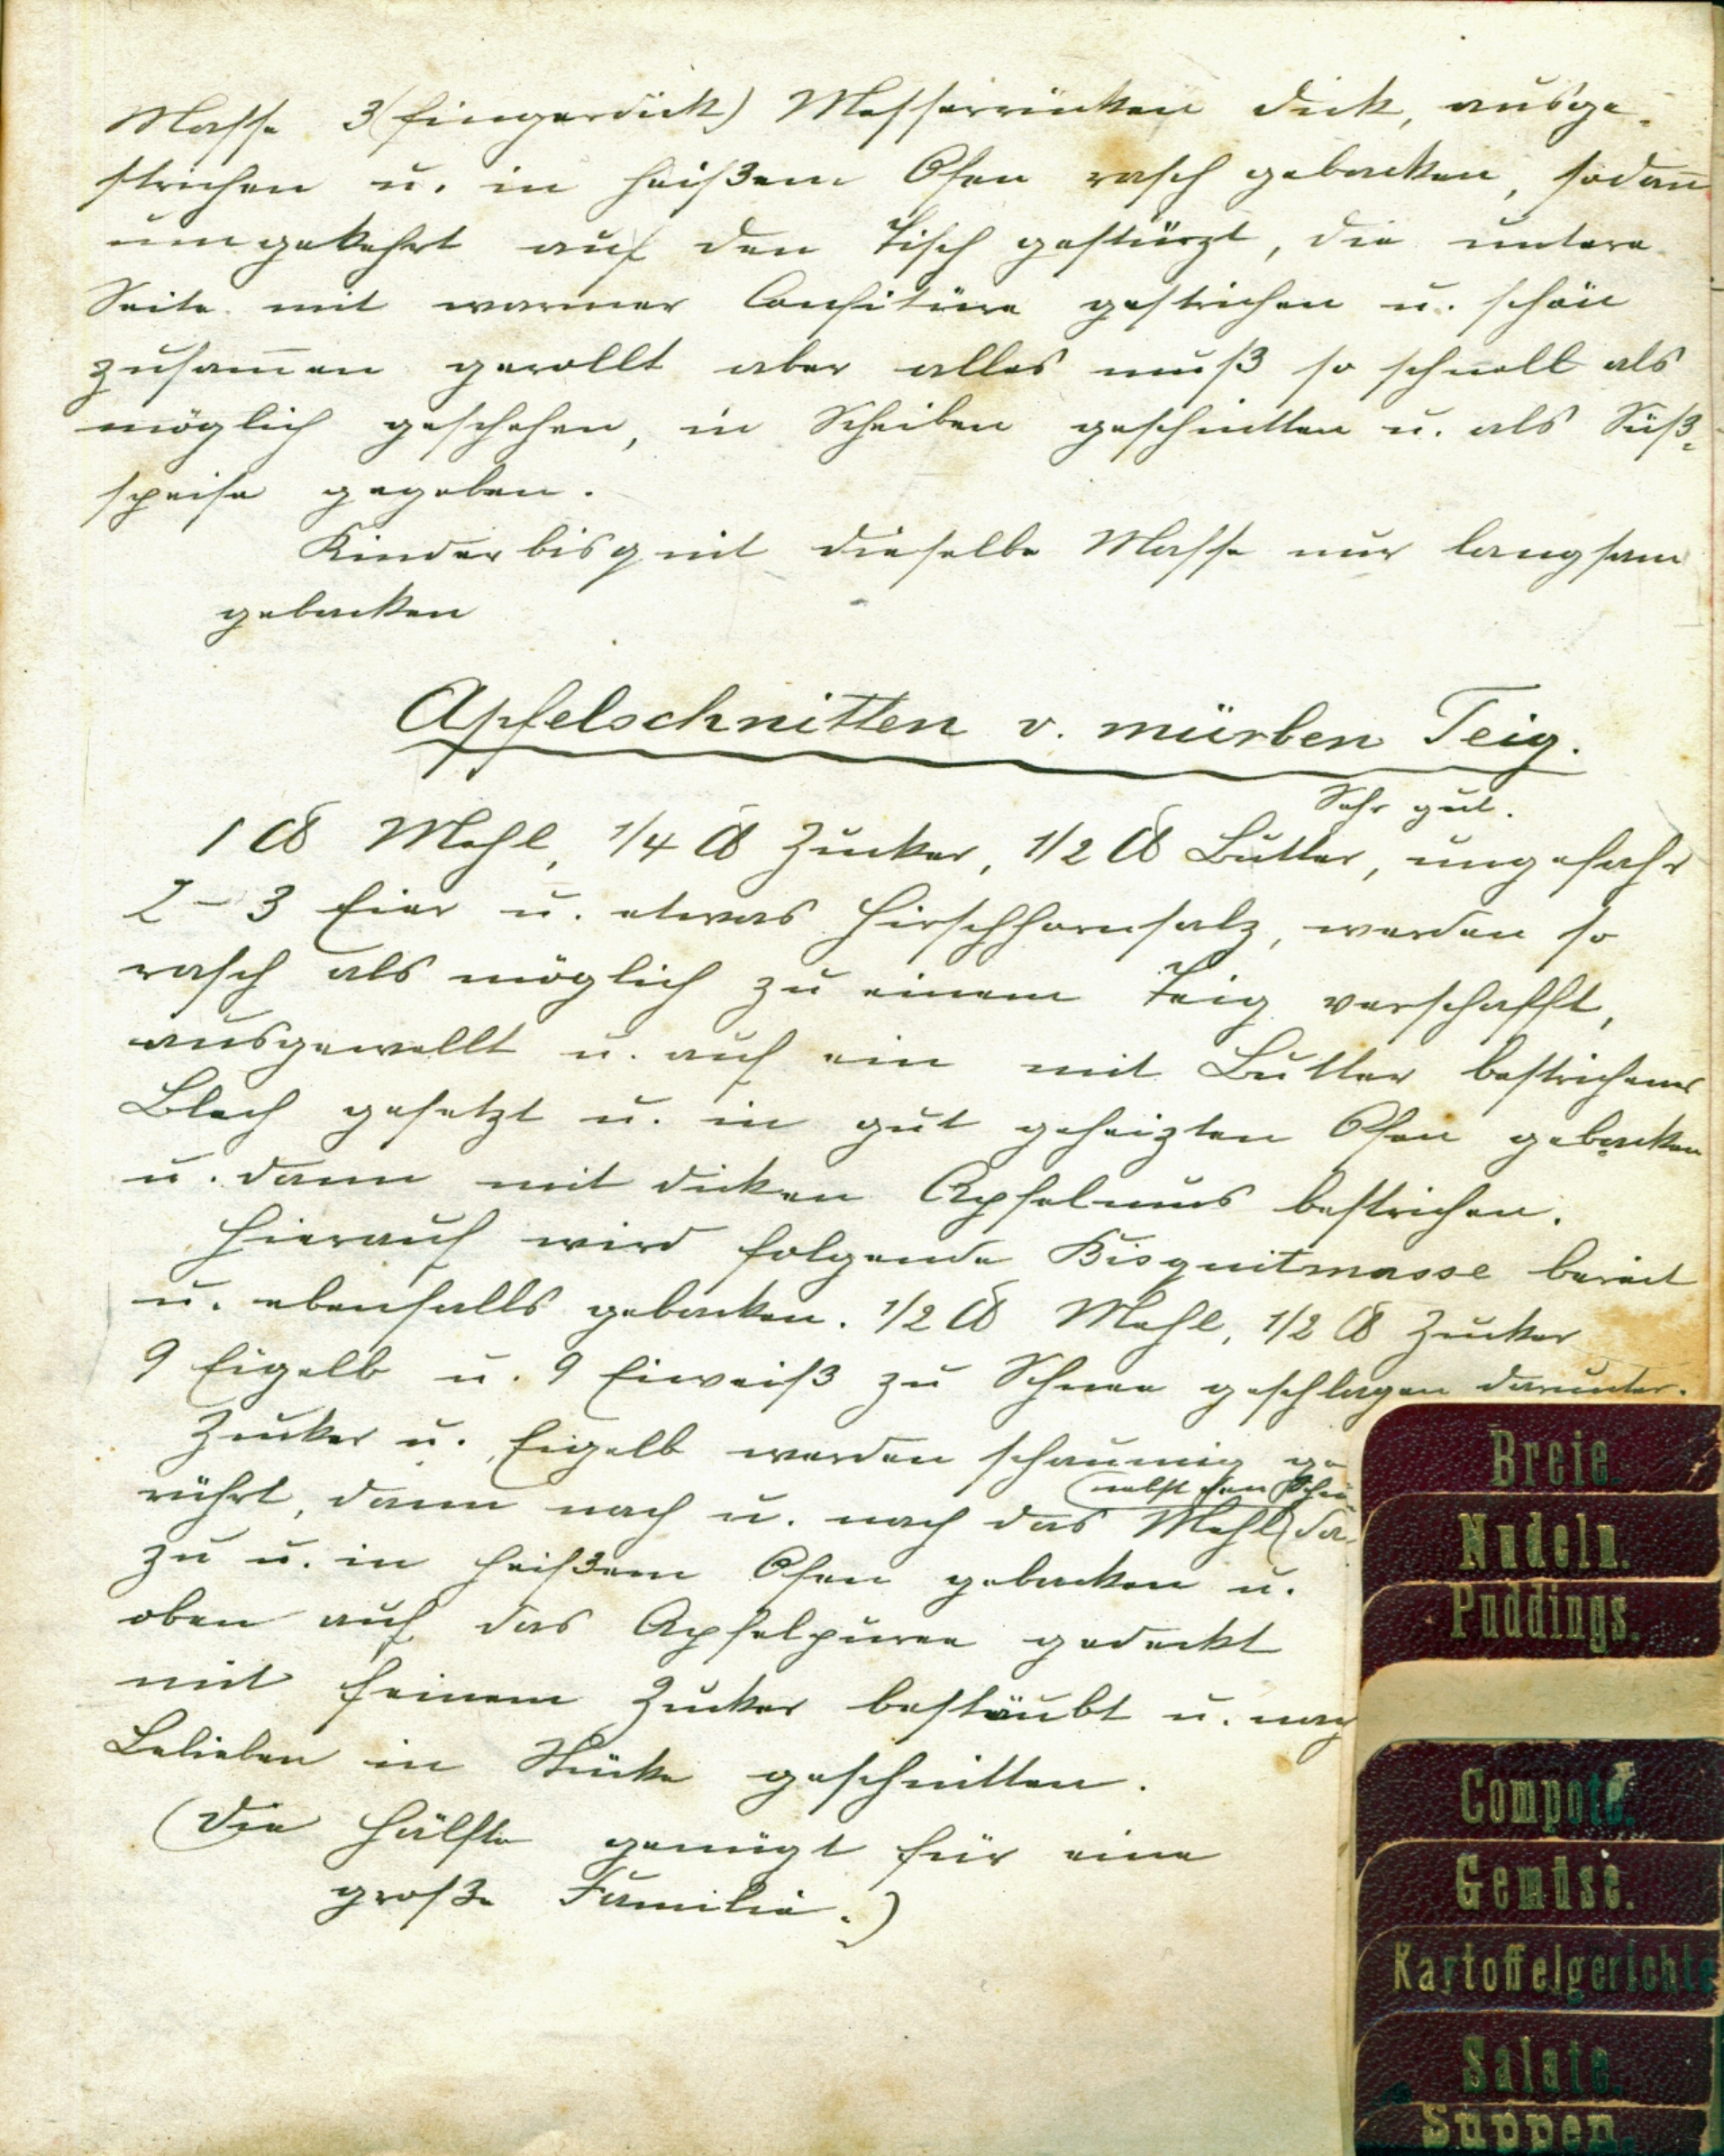 Masse 3 (fingerdick) Messerrücken dick, ausge-
strichen u. in heißem Ofen rasch gebacken, sodañ
umgekehrt auf den Tisch gestürzt, die untere
Seite mit warmer Confitüre gestrichen u. schön
zusam̄en gerollt aber alles muß so schnell als
möglich geschehen, in Scheiben geschnitten u. als Süß-
speise gegeben.
Kinderbisquit dieselbe Masse nur langsam
gebacken
Apfelschnitten v. mürben Teig.
Sehr gut.
1 ℔ Mehl, 1/4 ℔ Zucker, 1/2 ℔ Butter, ungefahr
2 – 3 Eier u. etwas Hirschhornsalz, werden so
rasch als möglich zu einem Teig verschafft,
ausgewellt u. auf ein mit Butter bestrichenes
Blech gesetzt u. in gut geheizten Ofen gebacken
u. dann mit dicken Apfelmus bestrichen.
Hierauf wird folgende Bisquitmasse bereit
u. ebenfalls gebacken. 1/2 ℔ Mehl, 1/2 ℔ Zucker
9 Eigelb u. 9 Eiweiß zu Schnee geschlagen darunter.
Zucker u. Eigelb werden schaumig ge
(nebst den Schnee
rührt, dann nach u. nach das Mehl) da-
zu u. in heißem Ofen gebacken u.
oben auf das Apfelpüree gedeckt
mit feinem Zucker bestäubt u. nach
Belieben in Stücke geschnitten.
(Die Hälfte genügt für eine
große Familie.)
Breie.
Nudeln.
Puddings.
Compote.
Gemüse.
Kartoffelgerichte
Salate.
Suppen.